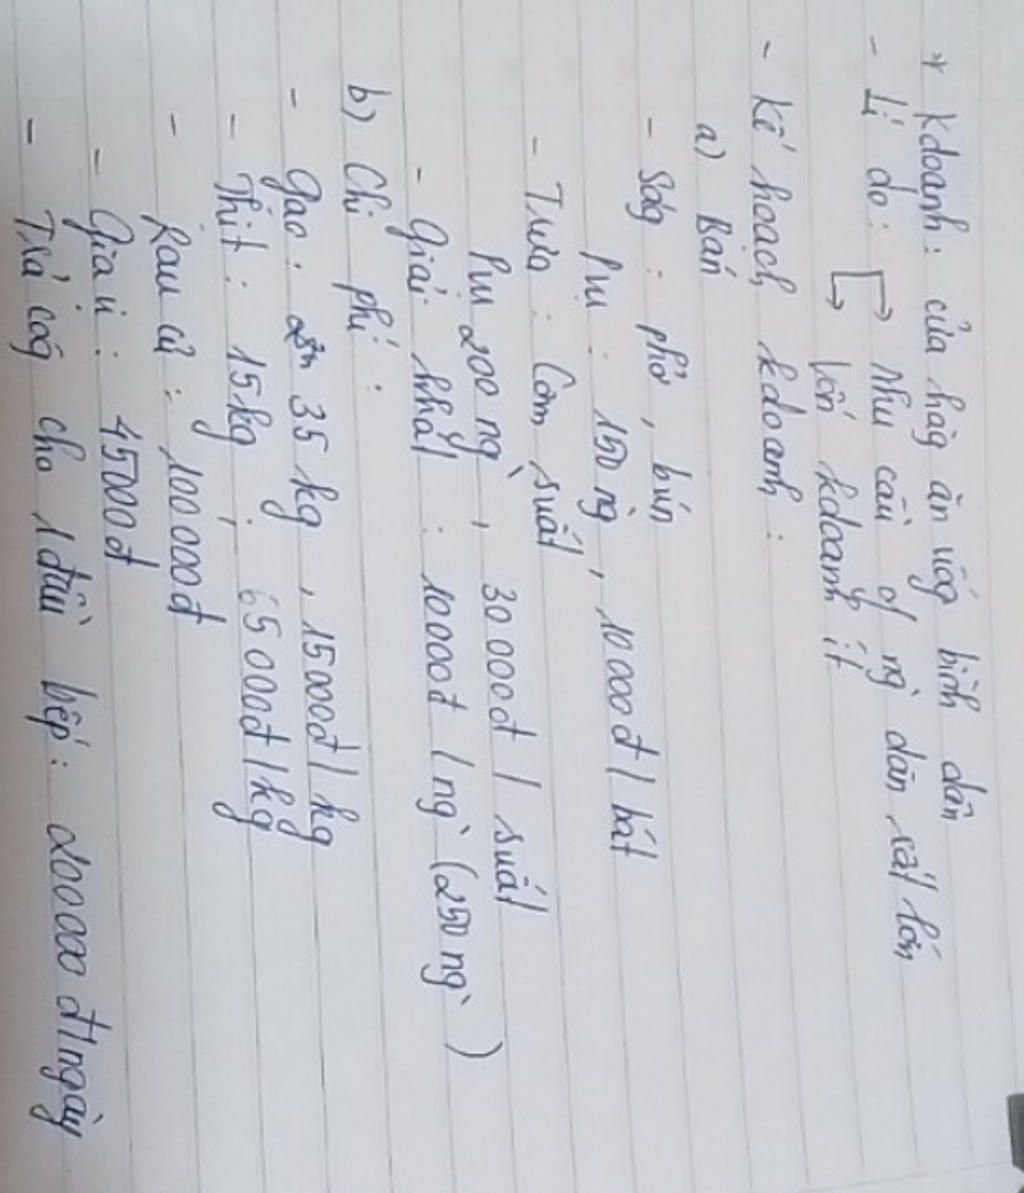 * Kdoanh: cửa hàg ăn uốg bình dân
- Lí do: → nhu cầu of ng` dân rất lớn
→ vốn kdoanh ít
- Kế hoạch kdoanh:
a) Bán
- Ság: phở, bún
Pvụ: 150 ng`, 10 000đ / bát
- Trưa: Cơm suất
Pvụ 200 ng`, 30 000đ / suất
- Giải khát: 10 000đ / ng` (250 ng`)
b) Chi phí:
- Gạo: 35 kg, 15 000đ / kg
- Thịt: 15kg, 65 000đ / kg
- Rau củ: 100 000đ
- Gia vị: 45 000đ
- Trả côg cho 1 đầu bếp: 200 000 đ/ngày